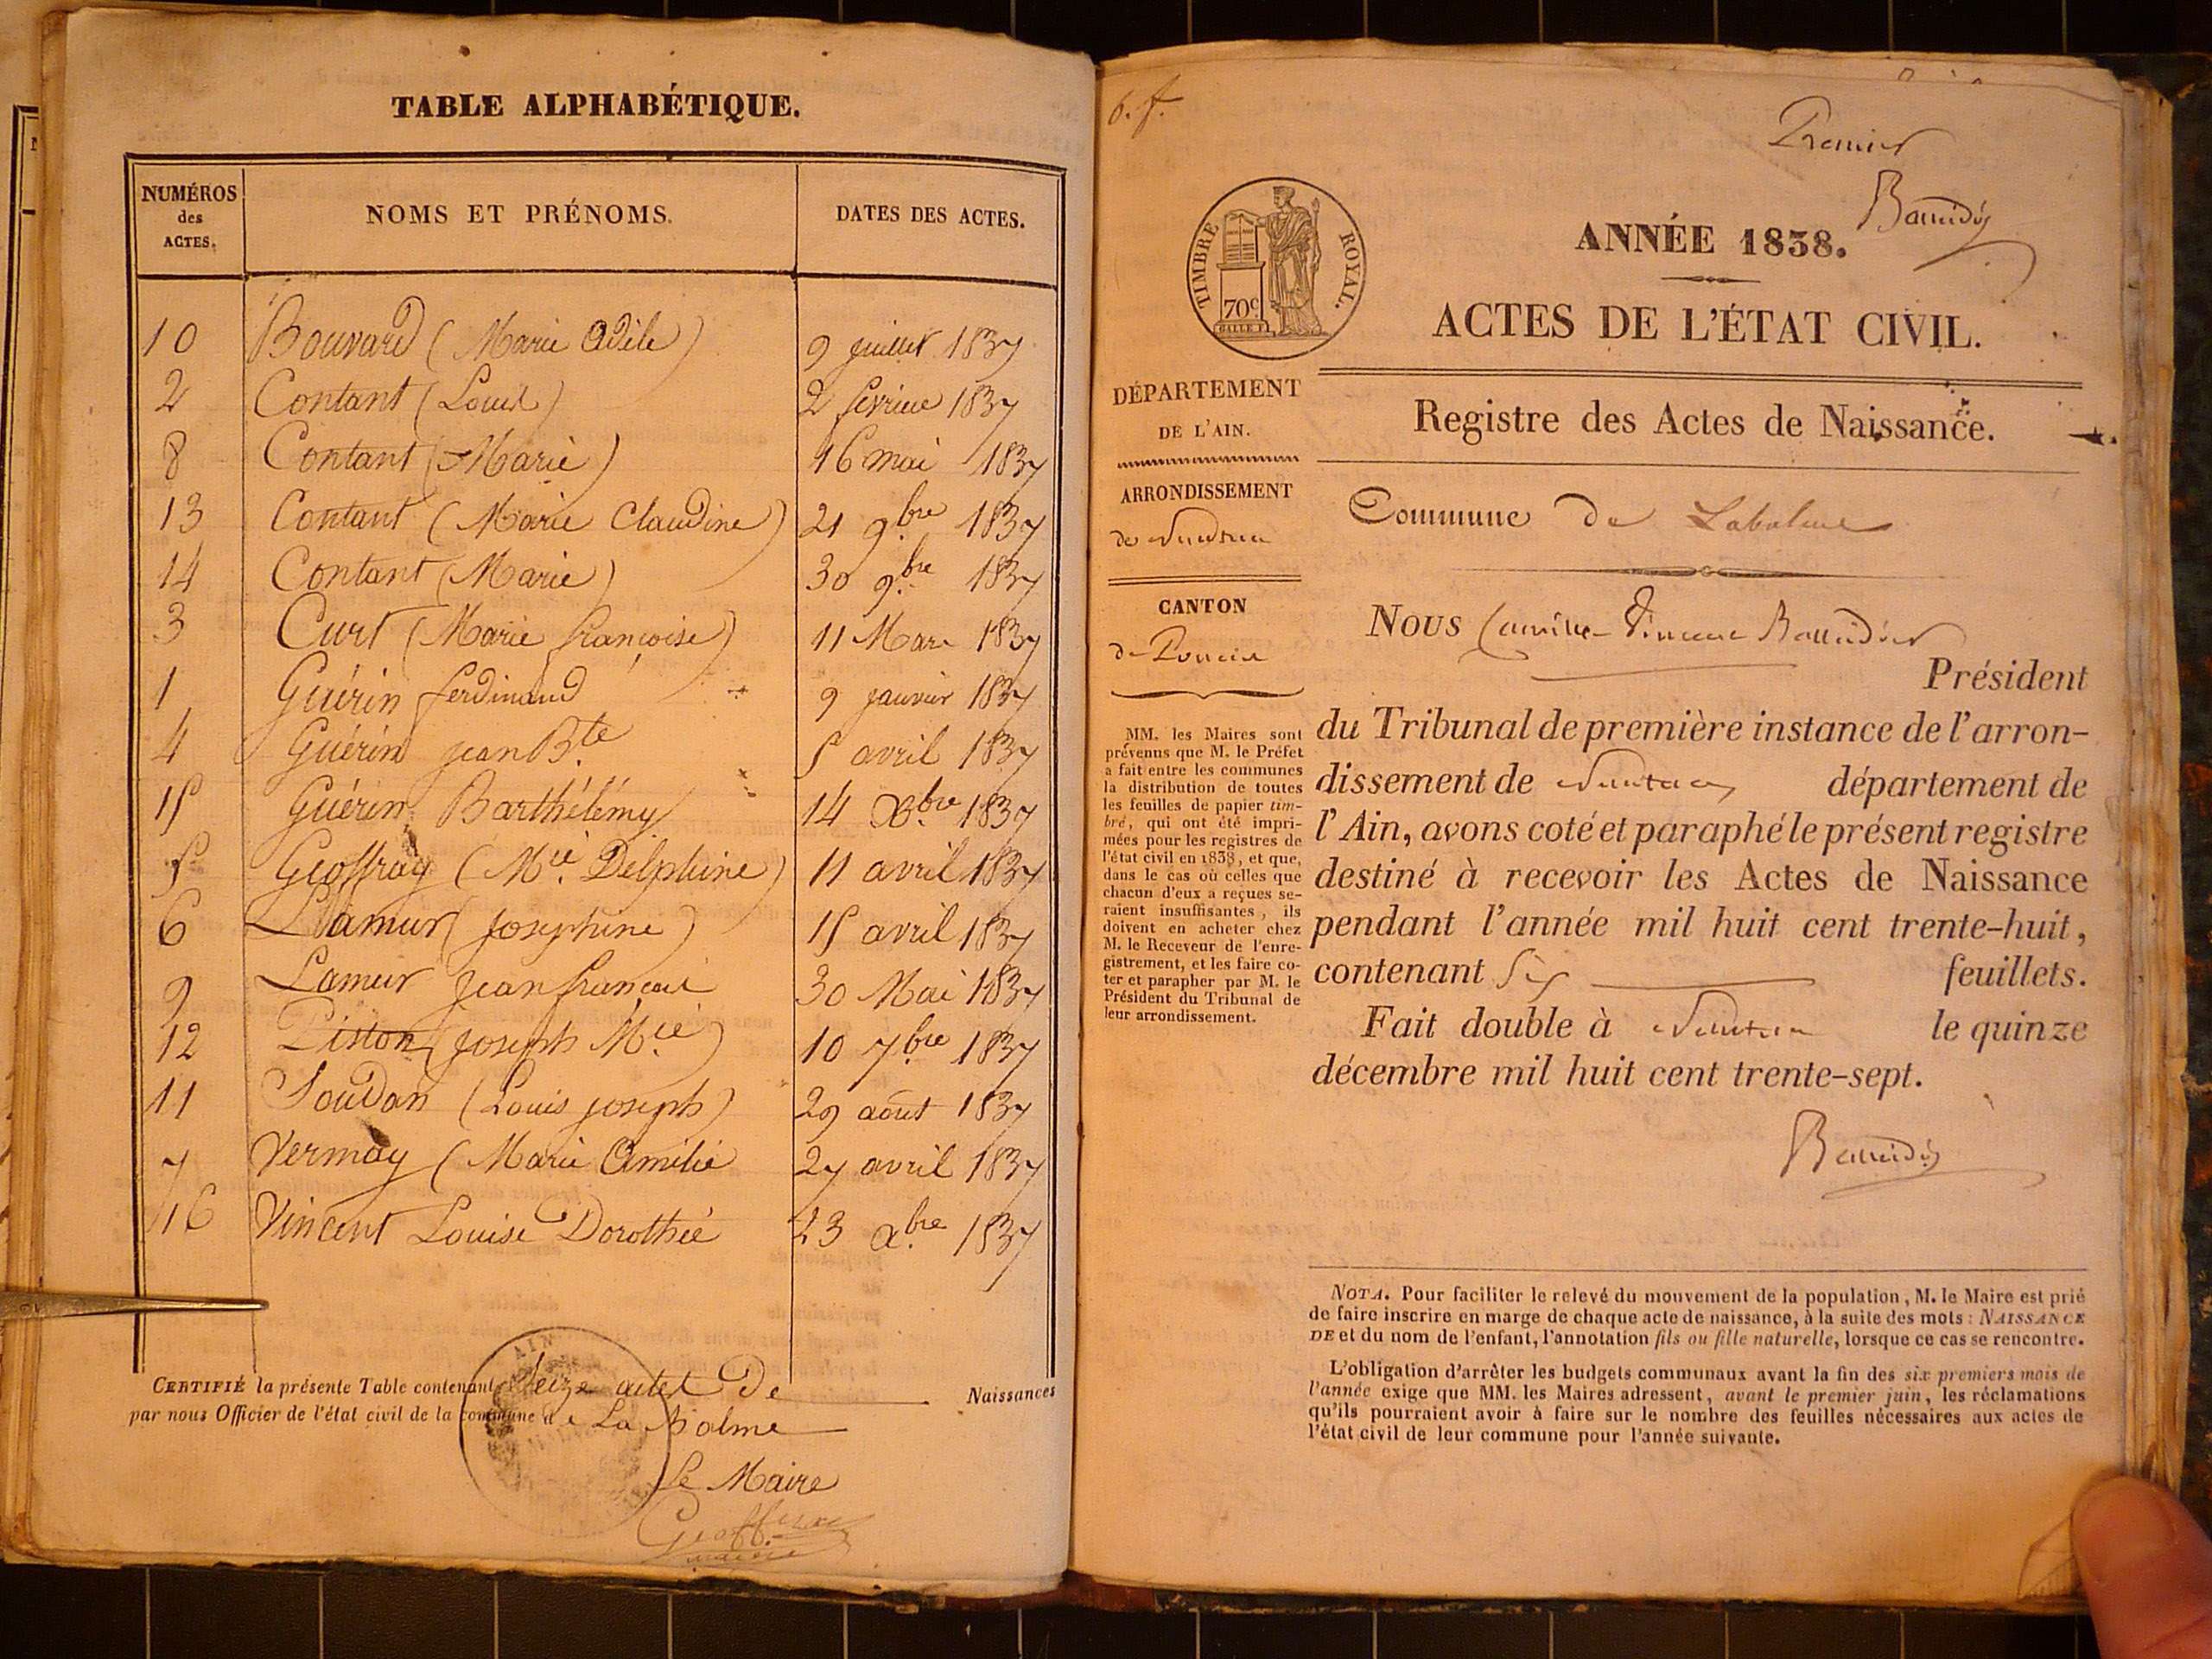 TABLE ALPHABÉTIQUE.
NUMÉROS des ACTES. NOMS ET PRÉNOMS. DATES DES ACTES.
10 Bouvard (Marie Adèle) 9 juillet 1837
2 Contant (Louis) 2 fevrier 1837
8 Contant (Marie) 16 mai 1837
13 Contant (Marie Claudine) 21 9.bre 1837
14 Contant (Marie) 30 9.bre 1837
3 Curt (Marie françoise) 11 Mars 1837
1 Guérin ferdinand 9 janvier 1837
4 Guérin jean B.te 5 avril 1837
15 Guérin Barthélémy 14 Xbre 1837
5 Geoffray (M.ie Delphine) 11 avril 1837
6 Lamur (josephine) 15 avril 1837
9 Lamur jean francois 30 Mai 1837
12 Piston (joseph M.ie) 10 7bre 1837
11 Soudan (Louis joseph) 29 août 1837
7 Vermay (Marie Amélie 27 avril 1837
16 Vincent Louise Dorothée 23 Xbre 1837
CERTIFIÉ la présente Table contenant Seize actes de Naissances
par nous Officier de l'état civil de la commune de La Balme
Le Maire
AIN
6. f.
Premier
TIMBRE ROYAL.
70c
ANNÉE 1838.
ACTES DE L'ÉTAT CIVIL.
DÉPARTEMENT
DE L'AIN.
ARRONDISSEMENT
de Nantua
CANTON
de Poncin
MM. les Maires sont
prévenus que M. le Préfet
a fait entre les communes
la distribution de toutes
les feuilles de papier tim-
bré, qui ont été impri-
mées pour les registres de
l'état civil en 1838, et que,
dans le cas où celles que
chacun d'eux a reçues se-
raient insuffisantes, ils
doivent en acheter chez
M. le Receveur de l'enre-
gistrement, et les faire co-
ter et parapher par M. le
Président du Tribunal de
leur arrondissement.
Registre des Actes de Naissance.
Commune de Labalme
Nous Camille Vincent
Président
du Tribunal de première instance de l'arron-
dissement de Nantua département de
l'Ain, avons coté et paraphé le présent registre
destiné à recevoir les Actes de Naissance
pendant l'année mil huit cent trente-huit,
contenant Six feuillets.
Fait double à Nantua le quinze
décembre mil huit cent trente-sept.
NOTA. Pour faciliter le relevé du mouvement de la population, M. le Maire est prié
de faire inscrire en marge de chaque acte de naissance, à la suite des mots : NAISSANCE
DE et du nom de l'enfant, l'annotation fils ou fille naturelle, lorsque ce cas se rencontre.
L'obligation d'arrêter les budgets communaux avant la fin des six premiers mois de
l'année exige que MM. les Maires adressent, avant le premier juin, les réclamations
qu'ils pourraient avoir à faire sur le nombre des feuilles nécessaires aux actes de
l'état civil de leur commune pour l'année suivante.